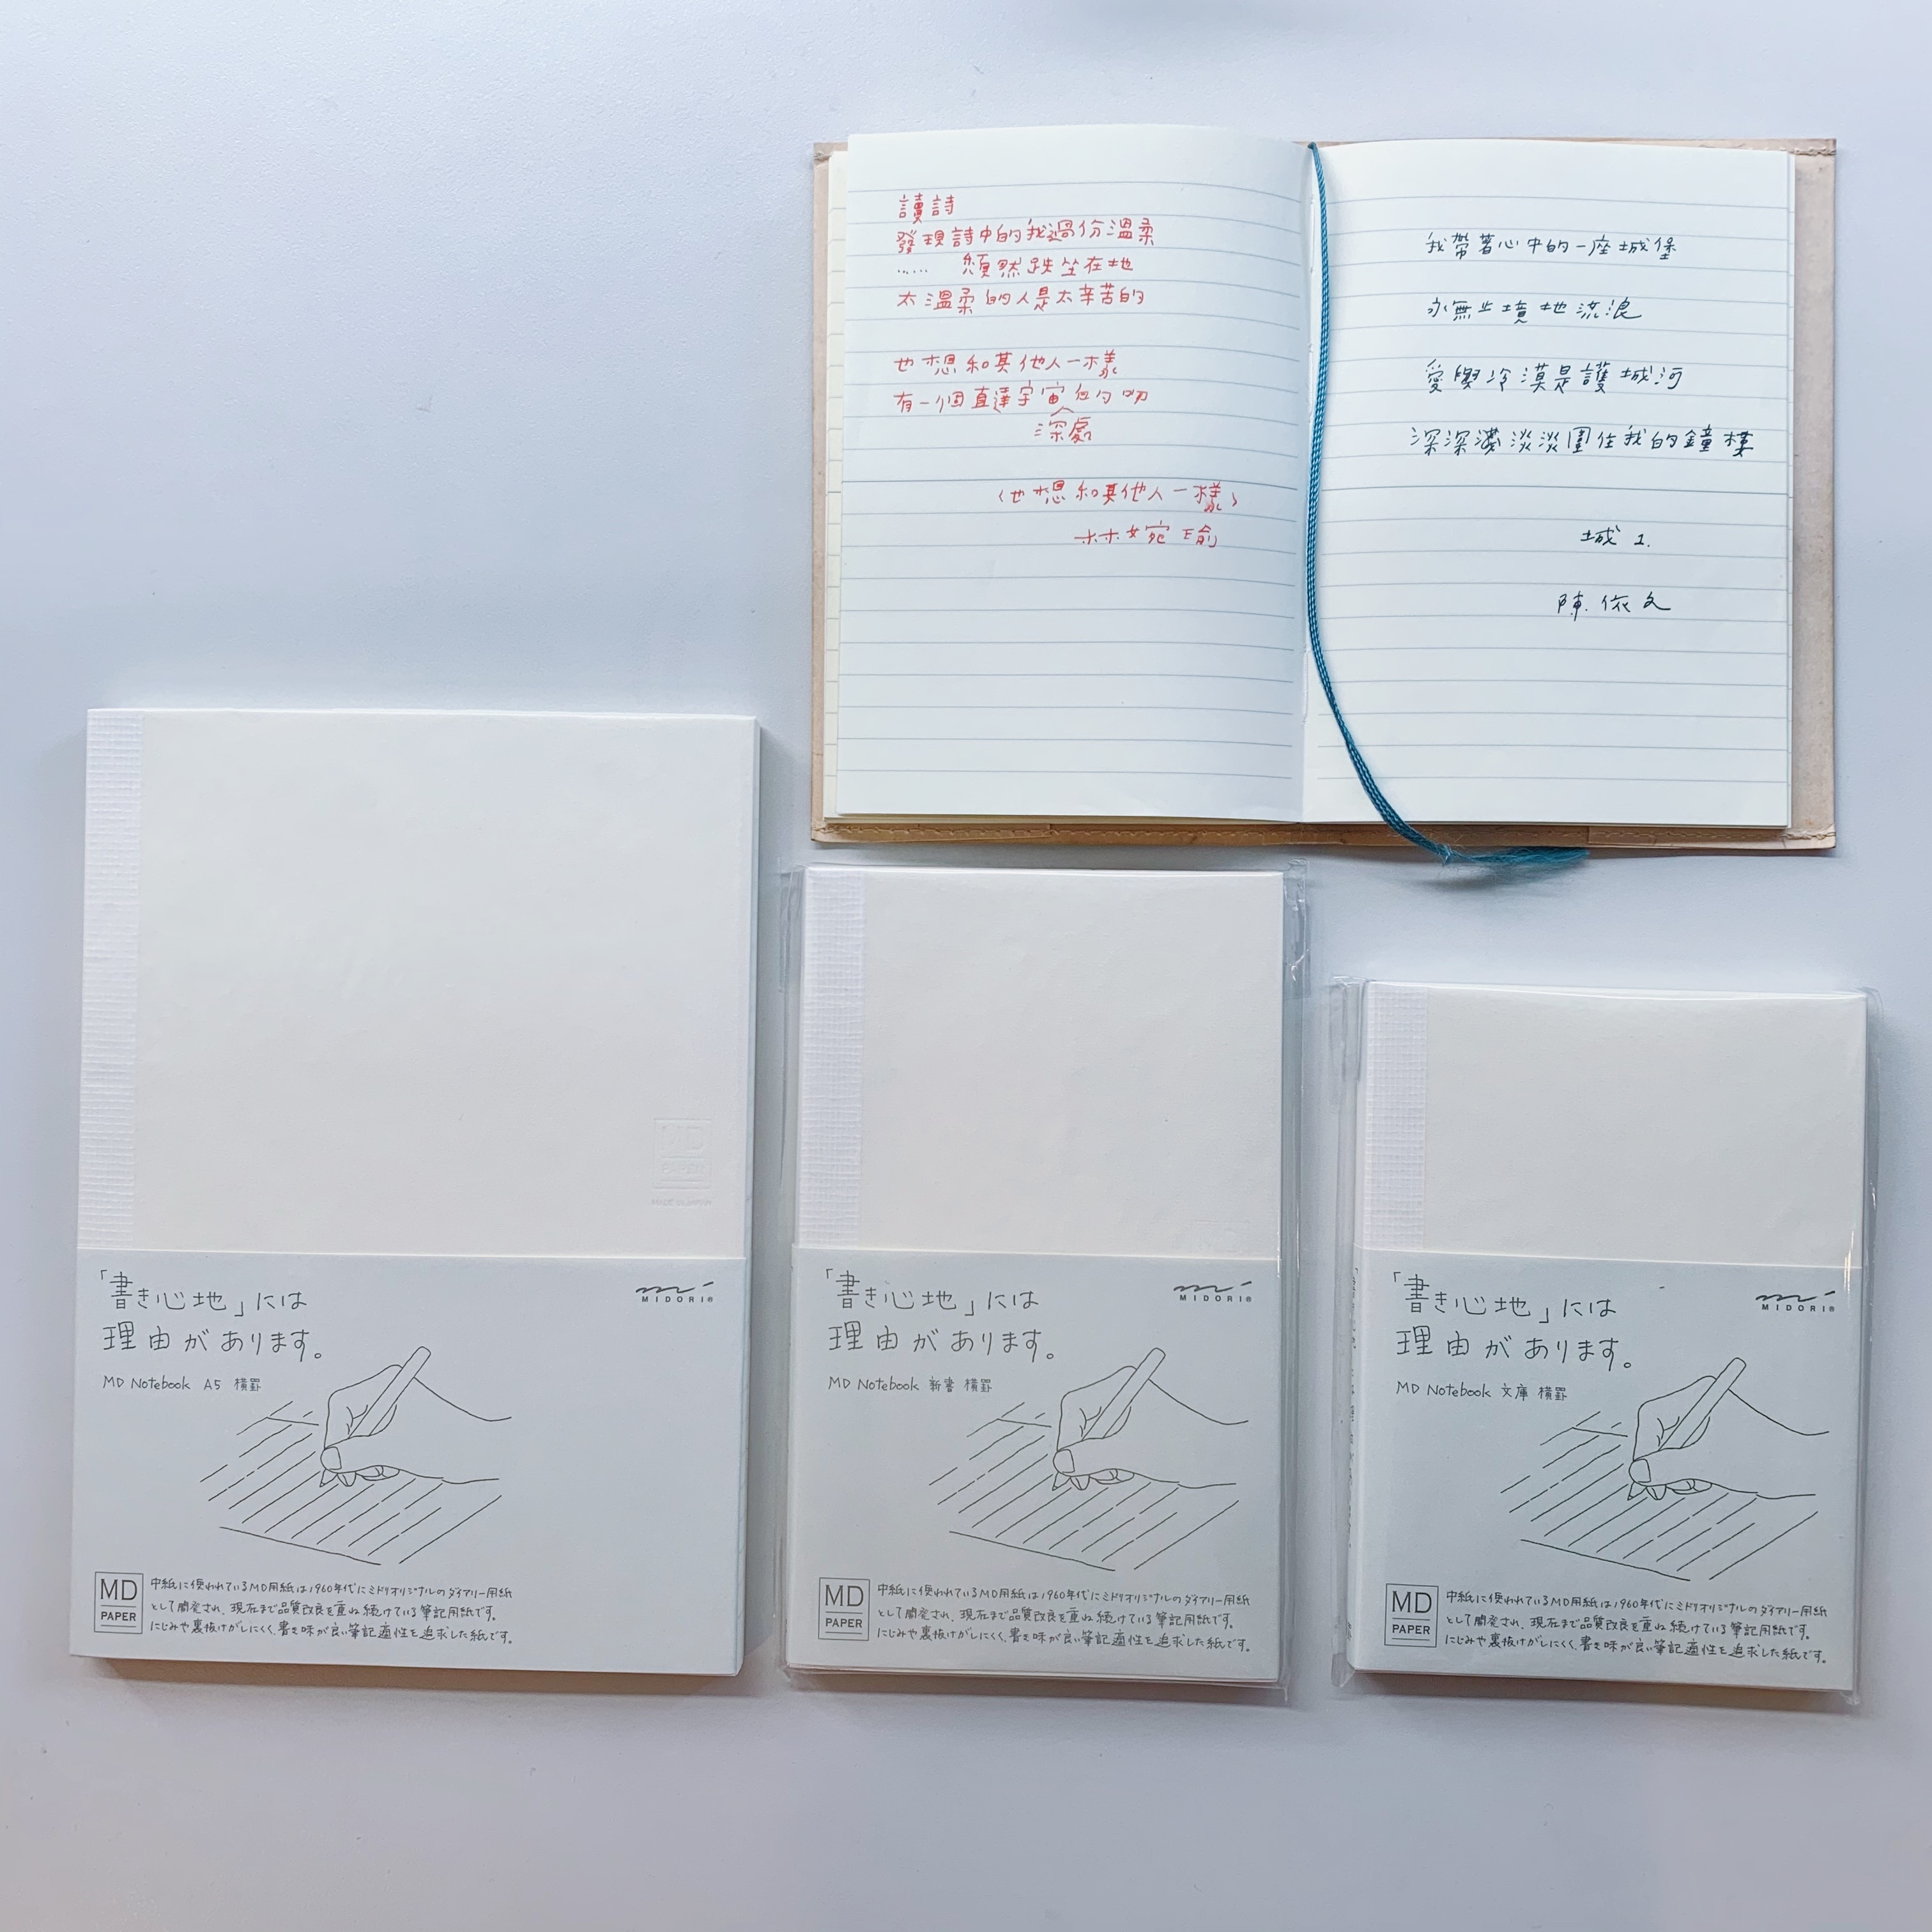 讀詩
發現詩中的我過份溫柔
…… 頹然跌坐在地
太溫柔的人是太辛苦的
也想和其他人一樣
有一個直達宇宙 的吻
深處
〈也想和其他人一樣〉
林婉瑜
我帶著心中的一座城堡
永無止境地流浪
愛與冷漠是護城河
深深淡淡圍住我的鐘樓
城 1.
陳依文
MD
PAPER
MADE IN JAPAN
「書き心地」には
理由があります。
MIDORI®
MD Notebook A5 横罫
MD
PAPER
中紙に使われているMD用紙は1960年代にミドリオリジナルのダイアリー用紙
として開発され、現在まで品質改良を重ね続けている筆記用紙です。
にじみや裏抜けがしにくく、書き味が良い筆記適性を追求した紙です。
「書き心地」には
理由があります。
MIDORI®
MD Notebook 新書 横罫
MD
PAPER
中紙に使われているMD用紙は1960年代にミドリオリジナルのダイアリー用紙
として開発され、現在まで品質改良を重ね続けている筆記用紙です。
にじみや裏抜けがしにくく、書き味が良い筆記適性を追求した紙です。
「書き心地」には
理由があります。
MIDORI®
MD Notebook 文庫 横罫
MD
PAPER
中紙に使われているMD用紙は1960年代にミドリオリジナルのダイアリー用紙
として開発され、現在まで品質改良を重ね続けている筆記用紙です。
にじみや裏抜けがしにくく、書き味が良い筆記適性を追求した紙です。